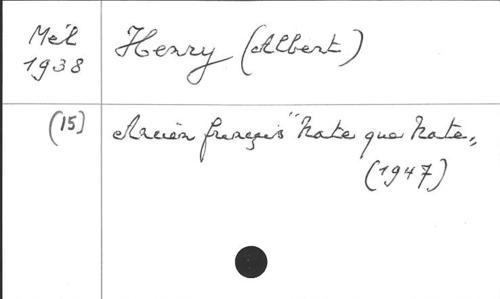 Mél
1938
Henry (Albert)
(15)
Ancien français "Hate que Hate„
(1947)